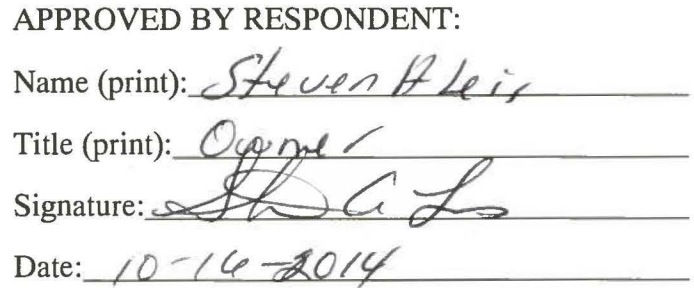 APPROVED BY RESPONDENT:
Name (print): Steven A Leis
Title (print): Owner
Signature:
Date: 10-16-2014